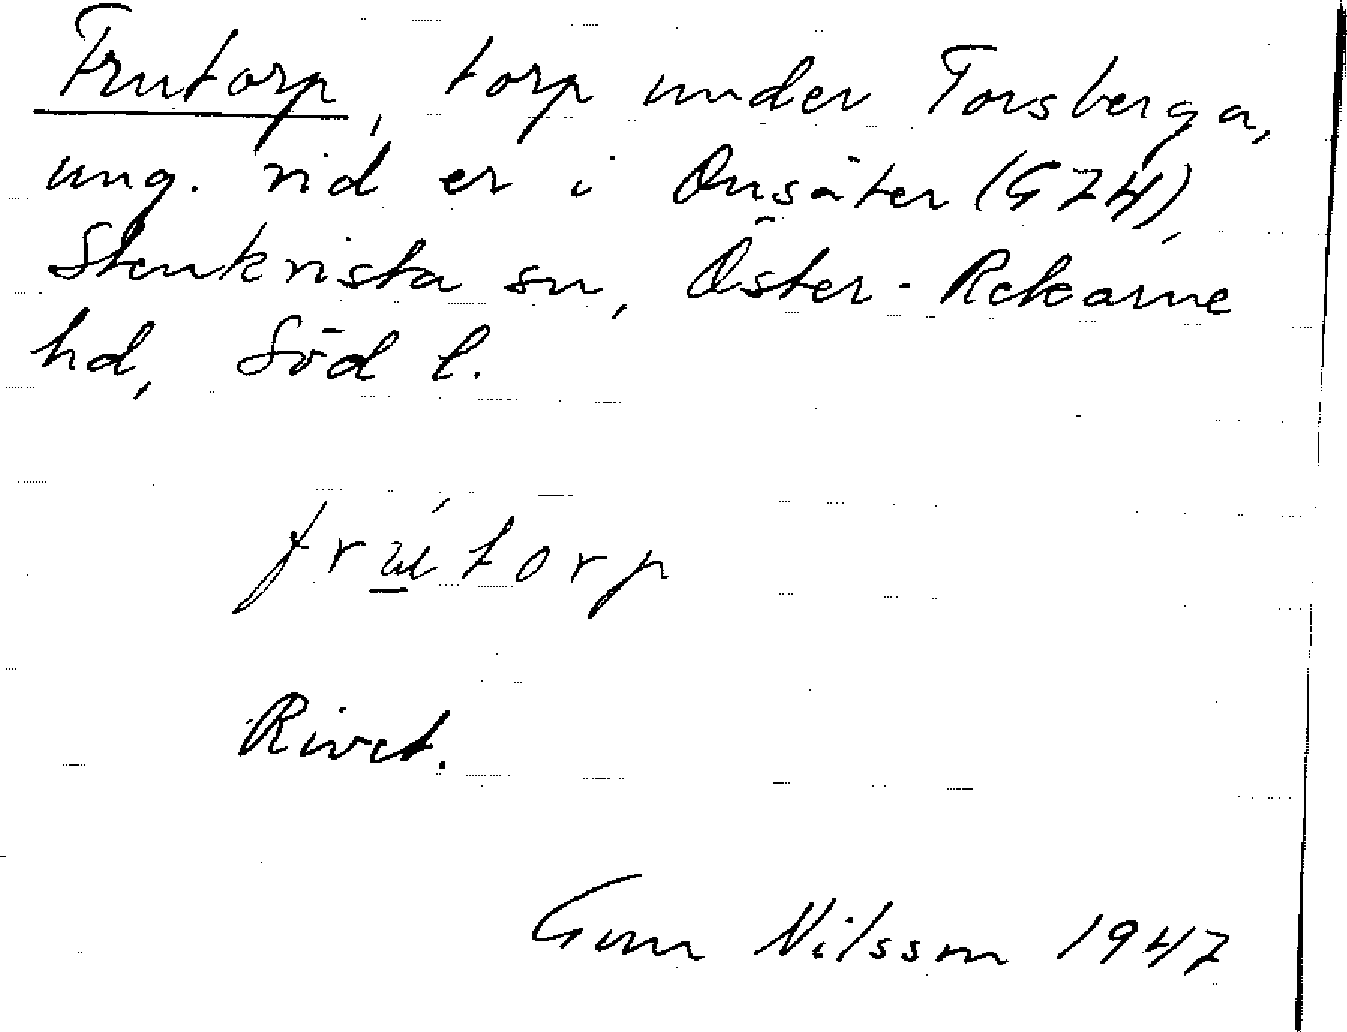 Frutorp, torp under Torsberga,
ung. vid er i Onsäter (G74),
Stenkvista sn, Öster-Rekarne
hd, Söd l.
frútorp
Rivet.
Gun Nilsson 1947